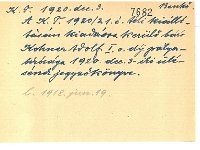 K. T. 1920. dec. 3.
7682
Benkó
A K. T. 1920/21. i. téli kiállításain kiadásra kerülő báró
Kohner Adolf I. o. díj pályabírósága 1920 dec. 3-iki ülésének jegyzőkönyve.
l. 1918. jun. 19.